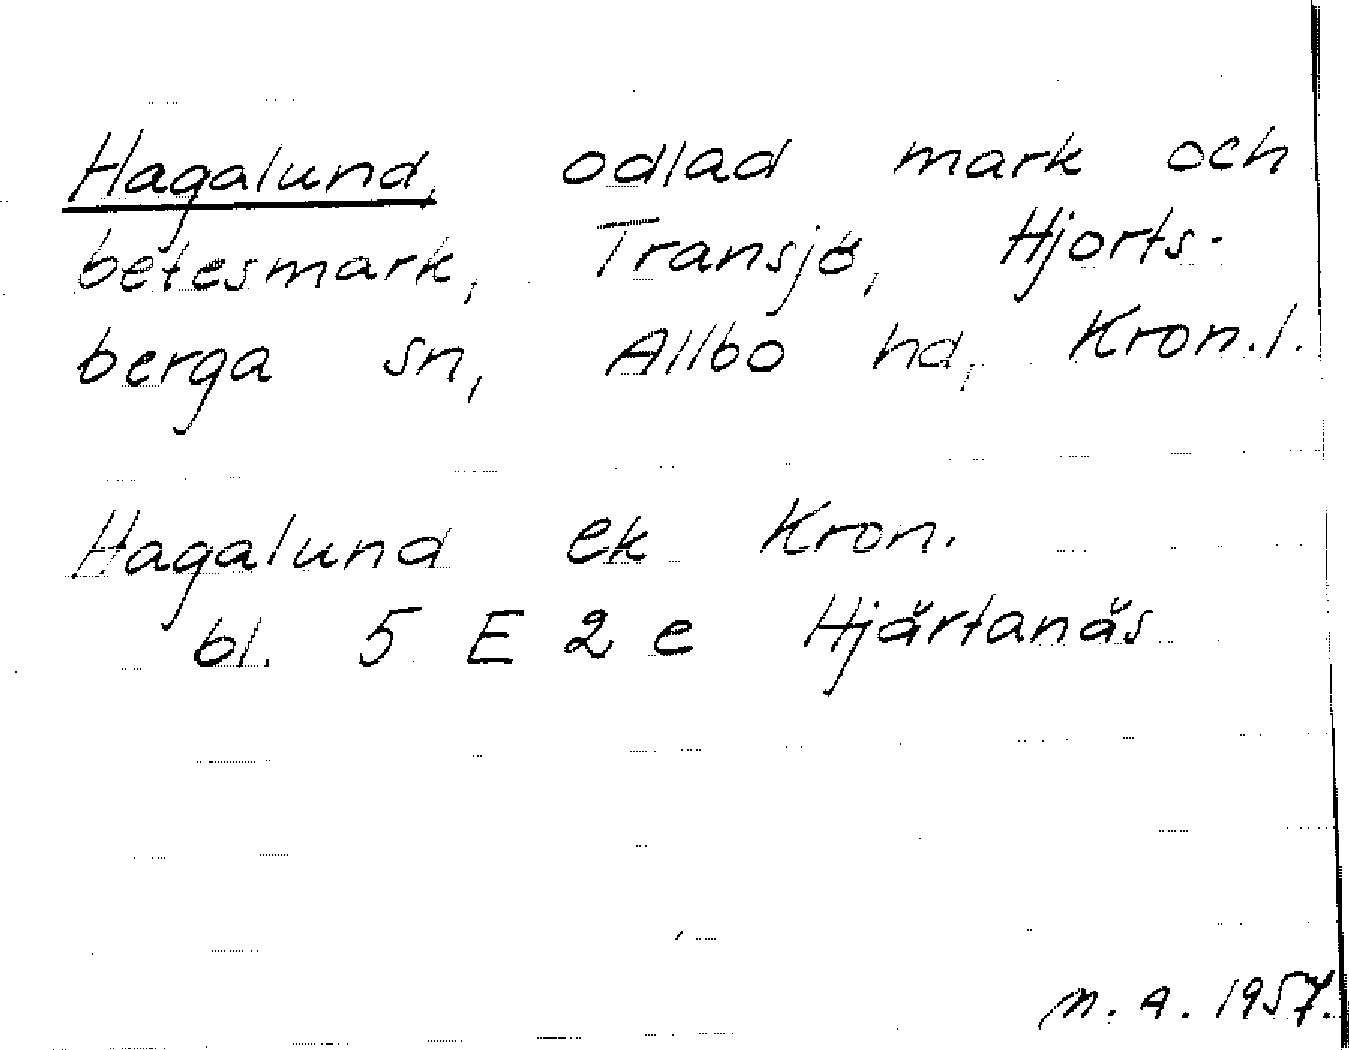 Hagalund, odlad mark och
betesmark, Transjö, Hjorts-
berga sn, Allbo hd, Kron.l.
Hagalund ek Kron.
bl. 5 E 2 e Hjärtanäs
M. A. 1957.